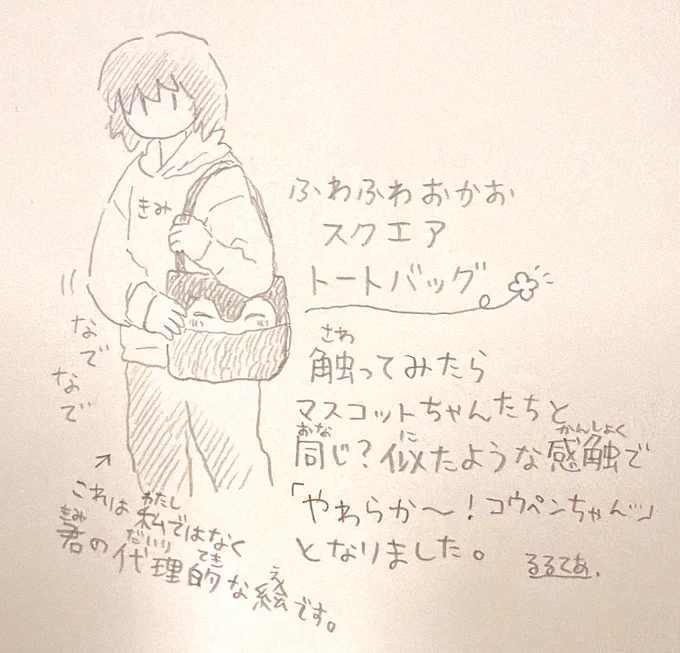 きみ
ふわふわおかお
スクエア
トートバッグ
さわ
触ってみたら
マスコットちゃんたちと
おな に かんしょく
同じ?似たような感触で
「やわらか〜!コウペンちゃん…」
となりました。
るるてあ.
なでなで
↗
わたし
これは私ではなく
きみ だいり てき え
君の代理的な絵です。